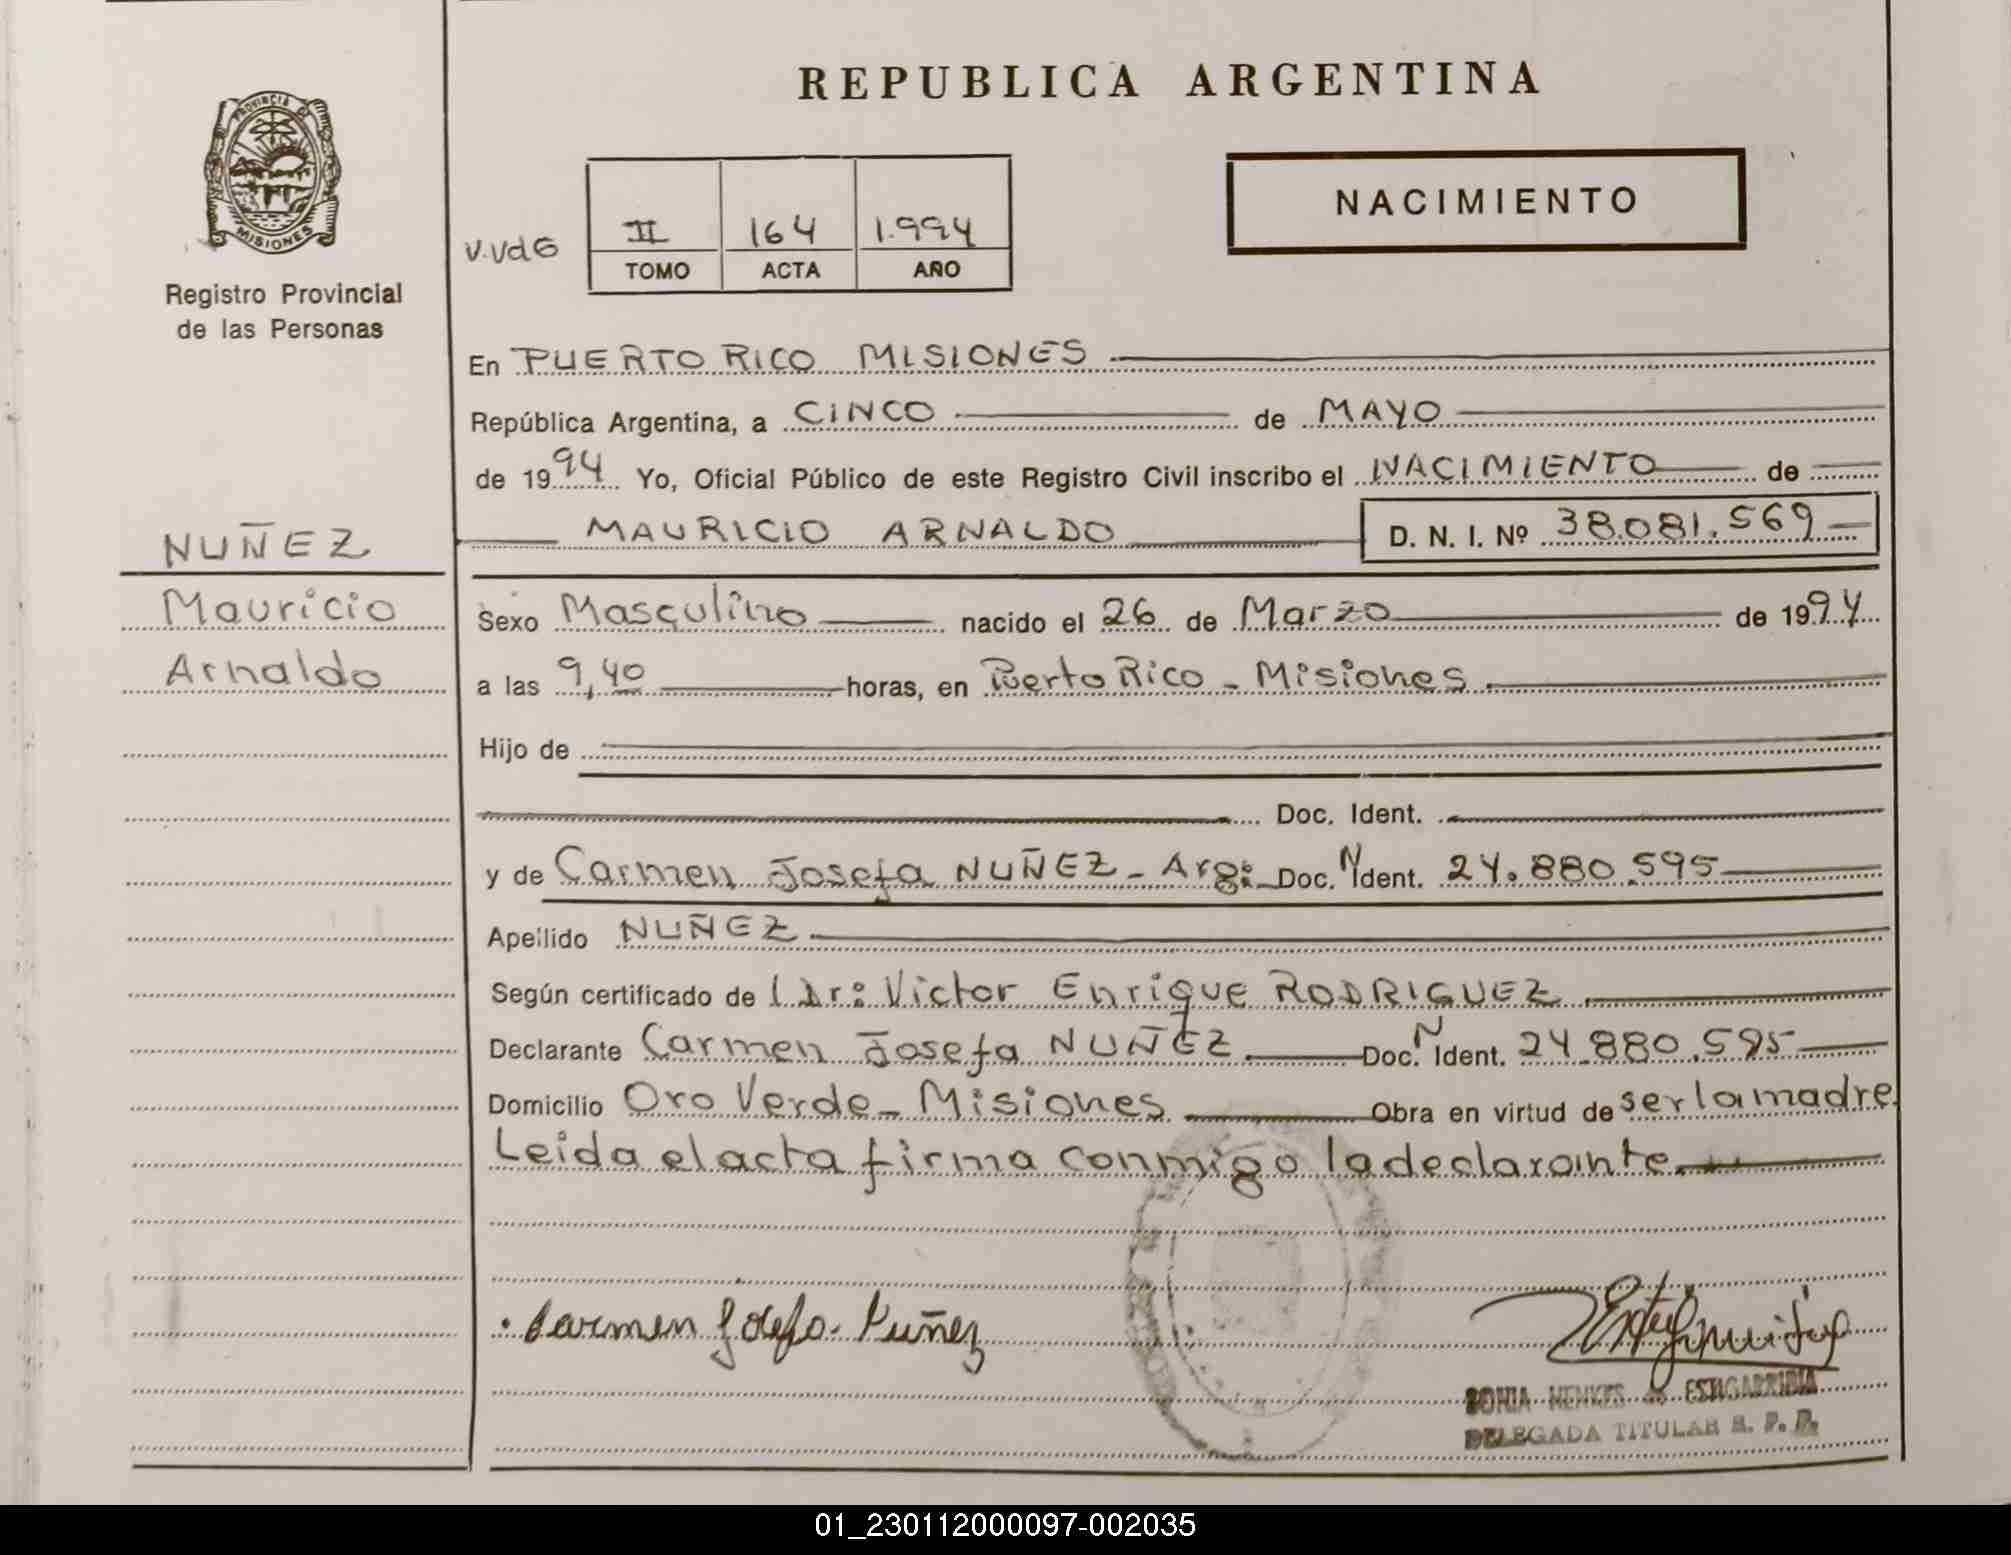 REPUBLICA ARGENTINA
PROVINCIA
MISIONES
Registro Provincial
de las Personas
NACIMIENTO
V.VdG
II 164 1.994
TOMO ACTA AÑO
En PUERTO RICO MISIONES
República Argentina, a CINCO de MAYO
de 1994 Yo, Oficial Público de este Registro Civil inscribo el NACIMIENTO de
MAURICIO ARNALDO D. N. I. Nº 38.081.569
NUÑEZ
Mauricio
Arnaldo
Sexo Masculino nacido el 26 de Marzo de 1994
a las 9,40 horas, en Puerto Rico - Misiones
Hijo de
Doc. Ident.
y de Carmen Josefa NUÑEZ - Arg: Doc. N Ident. 24.880.595
Apellido NUÑEZ
Según certificado de Dr: Victor Enrique RODRIGUEZ
Declarante Carmen Josefa NUÑEZ Doc. N Ident. 24.880.595
Domicilio Oro Verde - Misiones Obra en virtud de ser la madre.
Leida el acta firma conmigo la declarante.
Carmen Josefa Nuñez
SONIA MENKES de ESTIGARRIBIA
DELEGADA TITULAR R. P. P.
01_230112000097-002035